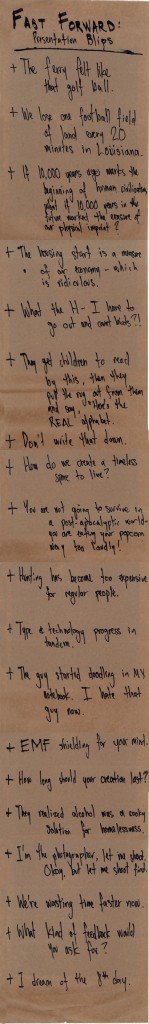 FAST FORWARD:
Presentation Blips
+ The furry felt like
that golf ball.
+ We lose one football field
of land every 20
minutes in Louisiana.
+ If 10,000 years ago marks the
beginning of human civilization,
what if 10,000 years in the
future marked the erasure of
our physical imprint?
+ The housing start is a measure
of our economy - which
is ridiculous.
+ What the H- I have to
go out and count boats?!
+ They get children to read
by this, then they
pull the rug out from them
and say, "Here's the
REAL alphabet.
+ Don't write that down.
+ How do we create a timeless
space to live?
+ You are not going to survive in
a post-apocalyptic world-
you are eating your popcorn
way too loudly!
+ Hunting has become too expensive
for regular people.
+ Type & technology progress in
tandem.
+ The guy started doodling in MY
notebook. I hate that
guy now.
+ EMF shielding for your mind.
+ How long should your creation last?
+ They realized alcohol was a
solution for homelessness.
+ I'm the photographer, let me shoot.
Okay, but let me shoot first.
+ We're wasting time faster now.
+ What kind of feedback would
you ask for?
+ I dream of the 8th day.